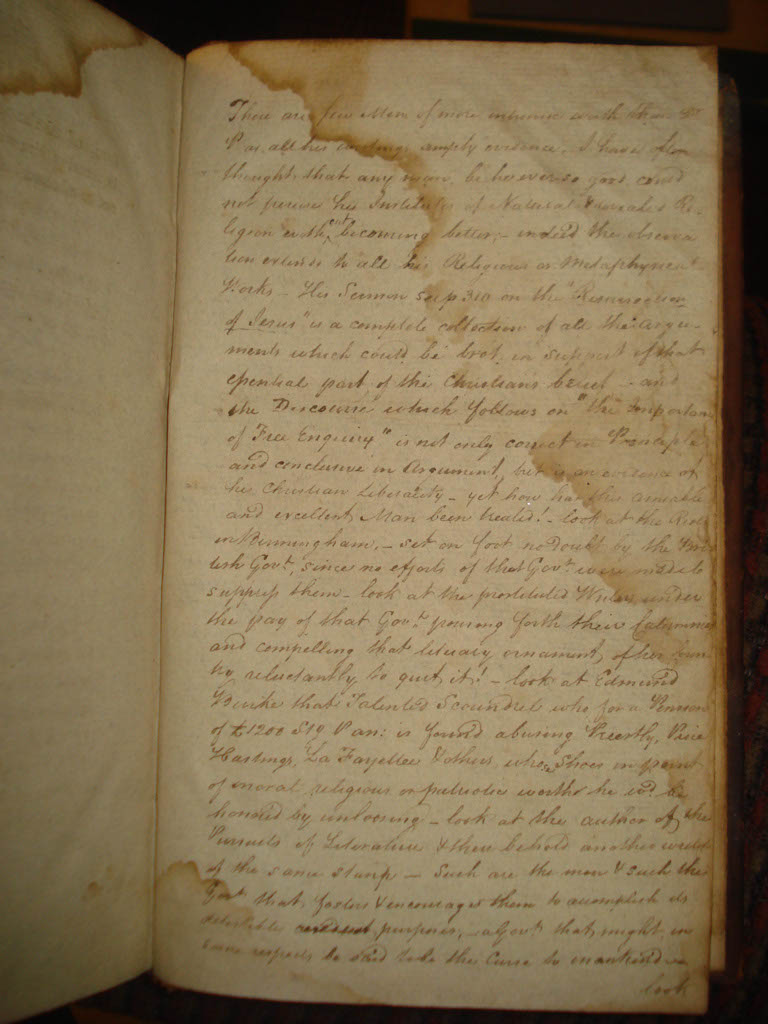 There are few Men of more intrinsic worth than Dr
P as all his writings amply evidence. I have often
thought that any man, be he ever so good could
not peruse his Institutes of Natural & revealed Re-
ligion without becoming better; - indeed the observa
tion extends to all his Religious or Metaphysical
Works - His Sermon See p 310 on the "Resurrection
of Jesus" is a complete collection of all the argu-
ments which could be brot. in support of that
essential part of the Christians belief - and
the Discourse which follows on "the Importance
of Free Enquiry" is not only correct in Principle
and conclusive in Argument, but is an evidence of
his Christian Liberality - yet how has this amiable
and excellent Man been treated! - look at the Riots
in Birmingham, - set on foot no doubt by the Brit
tish Govt., since no efforts of that Govt. were made to
suppress them - look at the prostituted Writers under
the pay of that Govt. pouring forth their Calumnies
and compelling that literary ornament, of her Coun
try reluctantly to quit it! - look at Edmund
Burke that Talented Scoundrel who for a Pension
of £1200 Stg P an: is found abusing Priestly, Price
Hastings, La Fayette & others, whose Shoes in point
of moral, religious or patriotic worth he wd. be
honored by unloosing - look at the author of the
Pursuits of Literature & there behold another
of the same stamp - Such are the men & such the
Govt. that fosters & encourages them to accomplish its
detestable purposes, - a Govt. that might in
some respects be said to be the Curse to mankind -
look